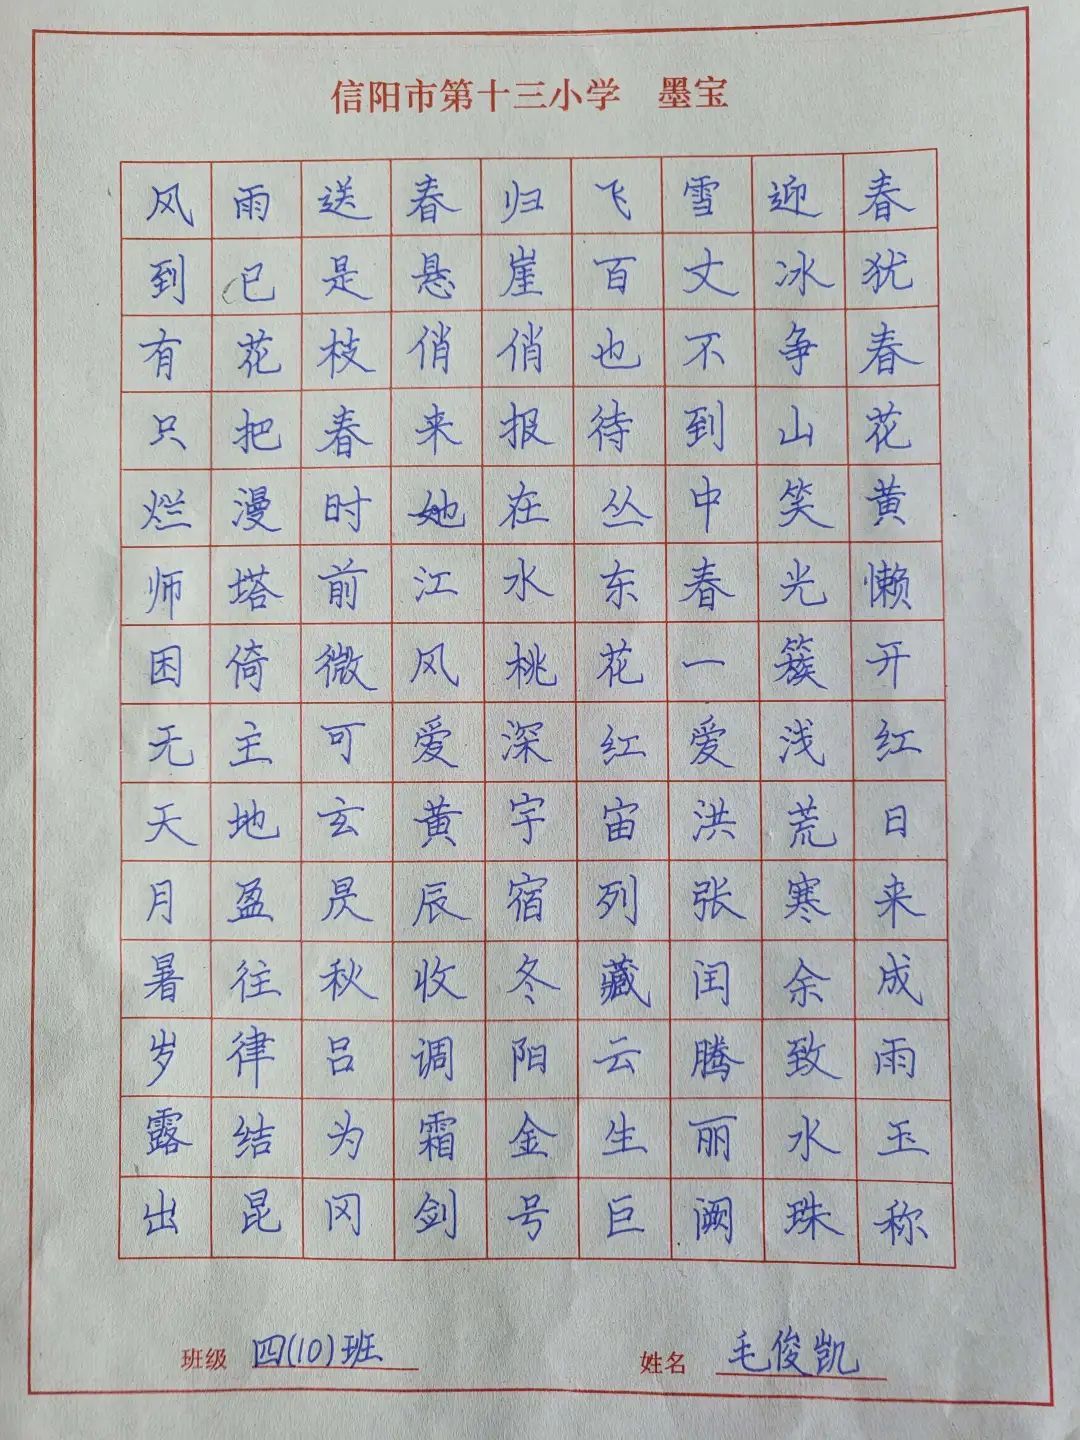 信阳市第十三小学 墨宝
风雨送春归飞雪迎春
到已是悬崖百丈冰犹
有花枝俏俏也不争春
只把春来报待到山花
烂漫时她在丛中笑黄
师塔前江水东春光懒
困倚微风桃花一簇开
无主可爱深红爱浅红
天地玄黄宇宙洪荒日
月盈昃辰宿列张寒来
暑往秋收冬藏闰余成
岁律吕调阳云腾致雨
露结为霜金生丽水玉
出昆冈剑号巨阙珠称
班级 四(10)班 姓名 毛俊凯